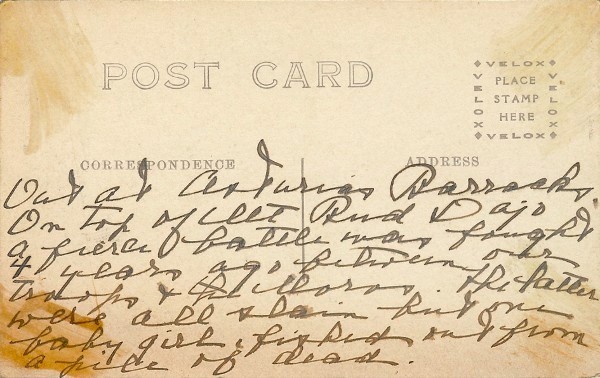 POST CARD
VELOX
VELOX
PLACE
STAMP
HERE
VELOX
VELOX
CORRESPONDENCE
ADDRESS
Out at Asturias Barracks
On top of Mt Bud Dajo
a fierce battle was fought
4 years ago between our
troops & the Moros. The latter
were all slain but one
baby girl, fished out from
a pile of dead.